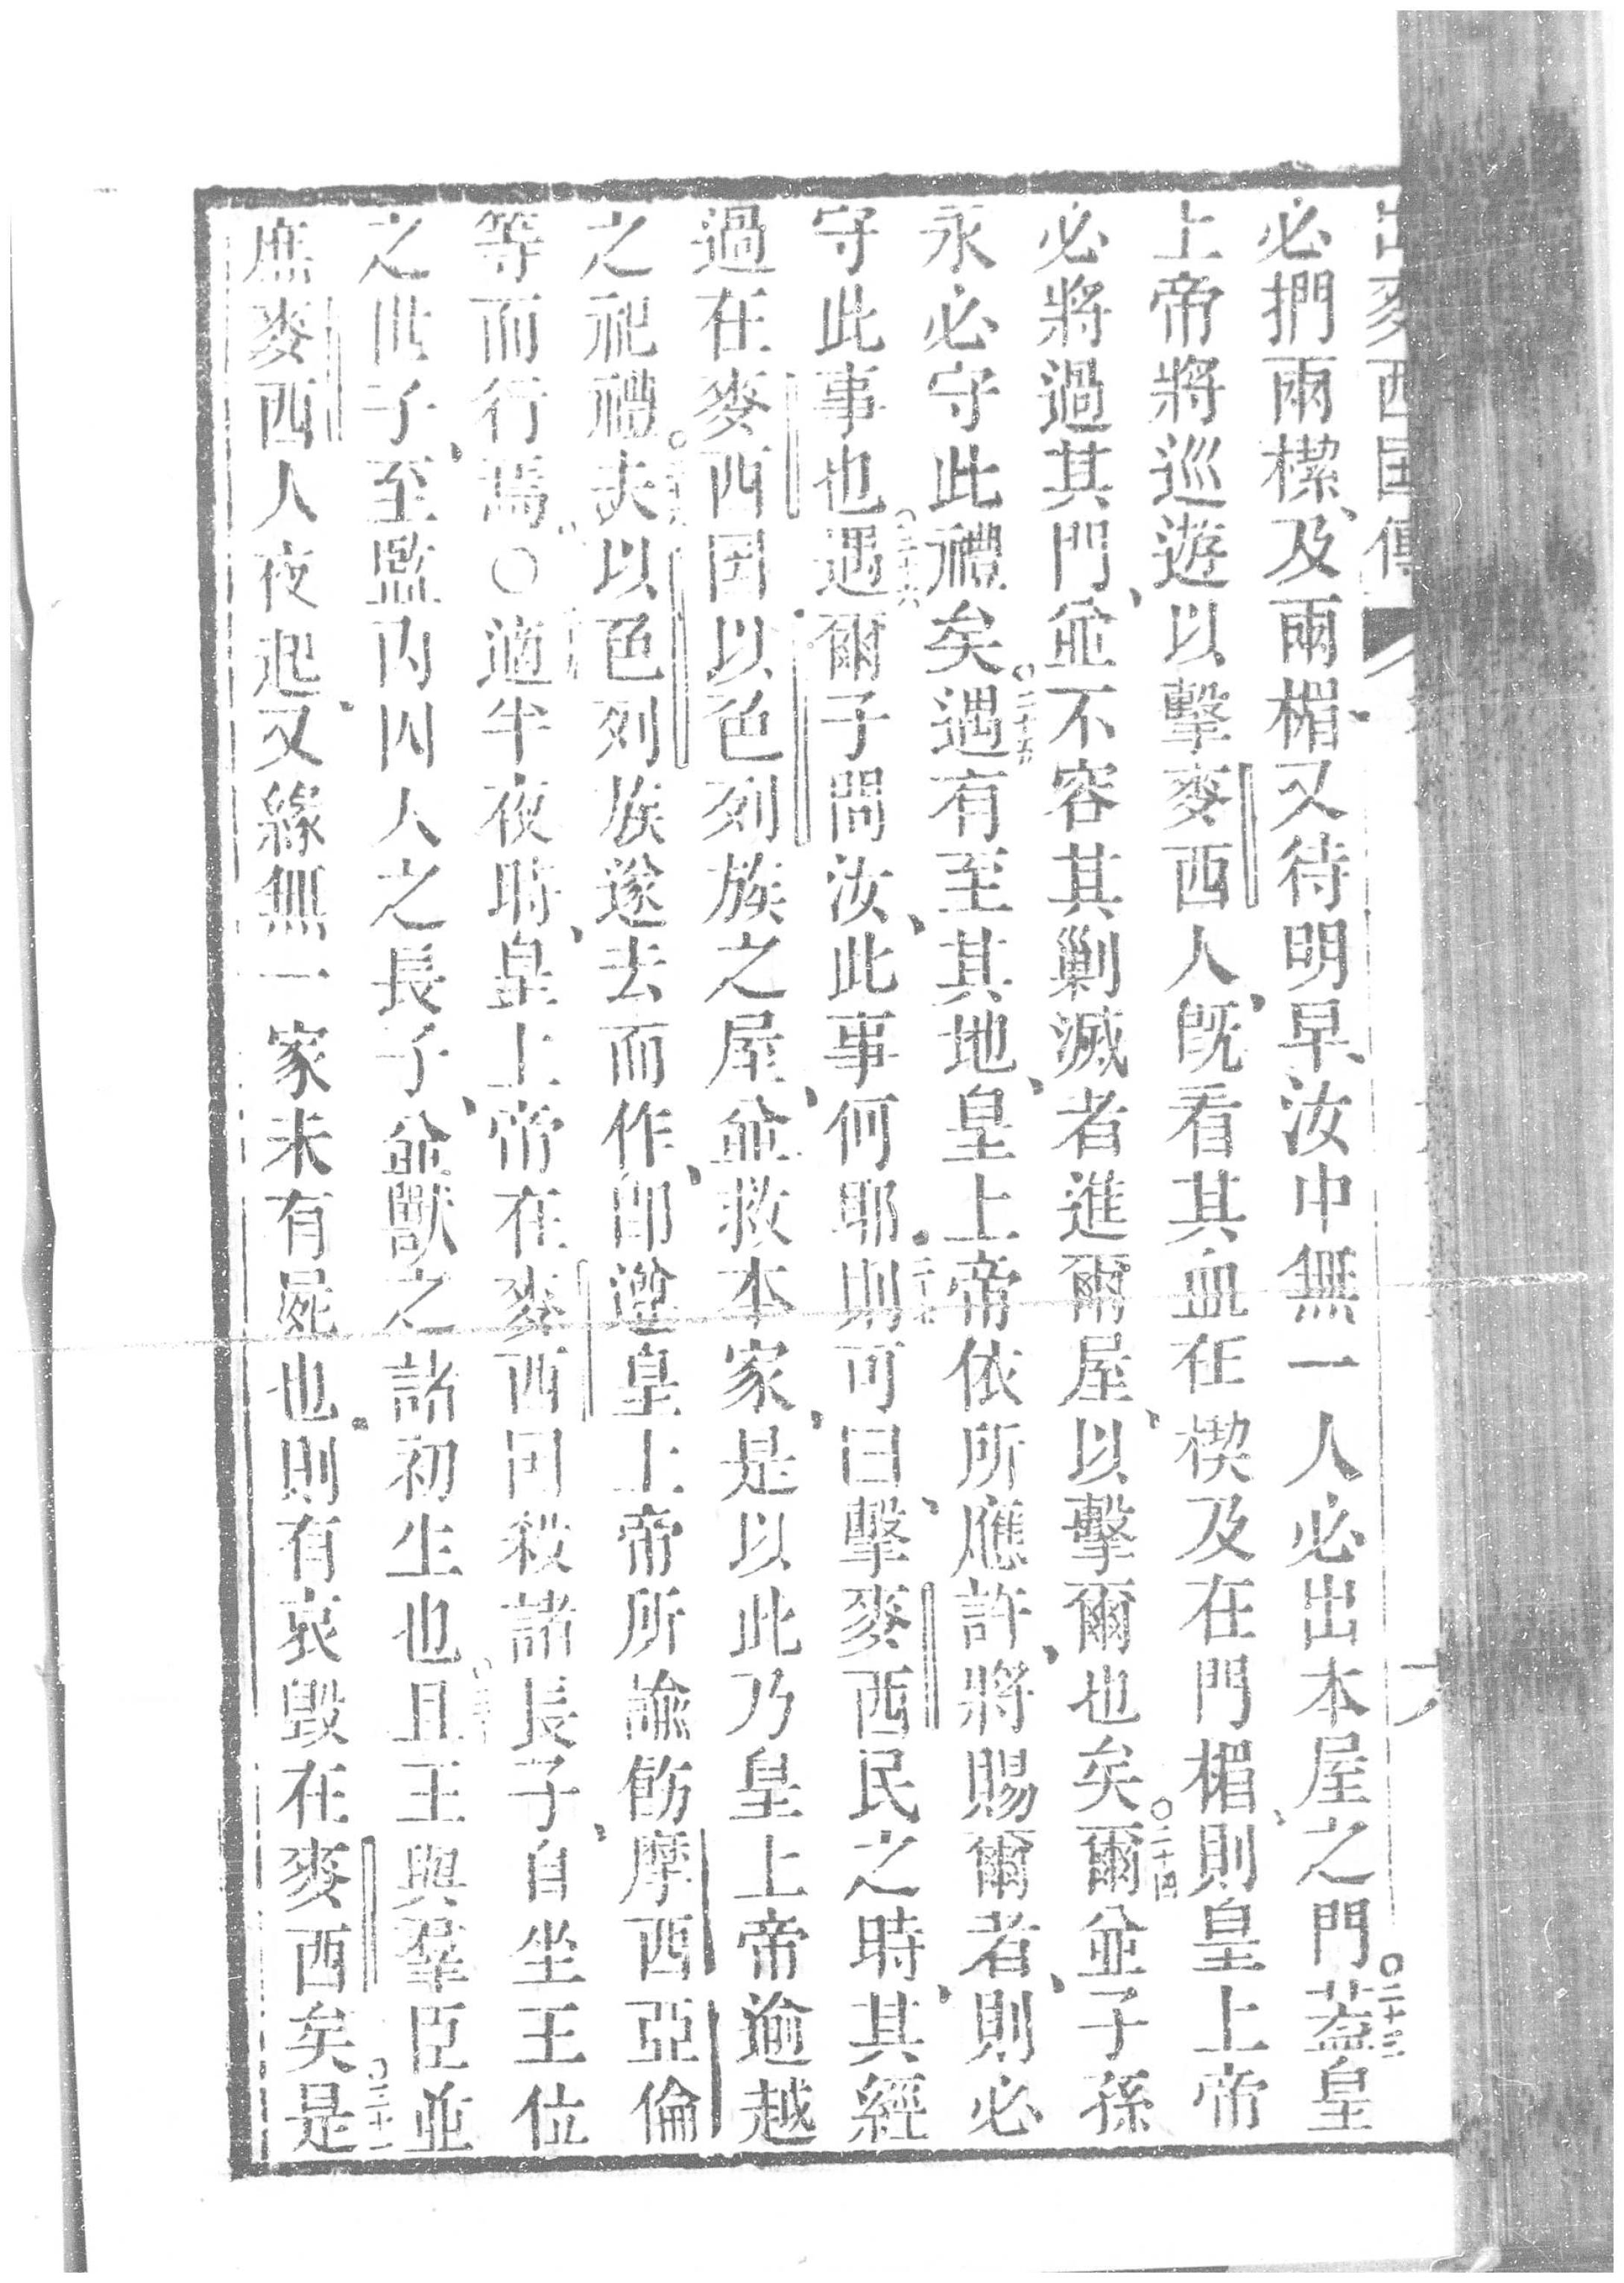 出麥西國傳
必捫兩㮮、及兩楣、又待明早、汝中無一人必出本屋之門○二十三蓋皇
上帝將巡遊以擊麥西人、既看其血在楔及在門楣、則皇上帝
必將過其門、並不容其剿滅者進爾屋、以擊爾也矣○二十四爾並子孫
永必守此禮矣○二十五遇有至其地、皇上帝依所應許、將賜爾者、則必
守此事也○二十六遇爾子問汝、此事何耶。○二十七則可曰、擊麥西民之時、其經
過在麥西因以色列族之屋、並救本家、是以此乃皇上帝逾越
之祀禮。○二十八夫以色列族遂去而作、即遵皇上帝所諭飭摩西亞倫
等而行焉○適半夜時、皇上帝在麥西囯殺諸長子、自坐王位
之世子、至監內囚人之長子、並獸之諸初生也○三十且王與羣臣並
庶麥西人夜起、又緣無一家未有屍也。則有哀毀在麥西矣○三十一是
六